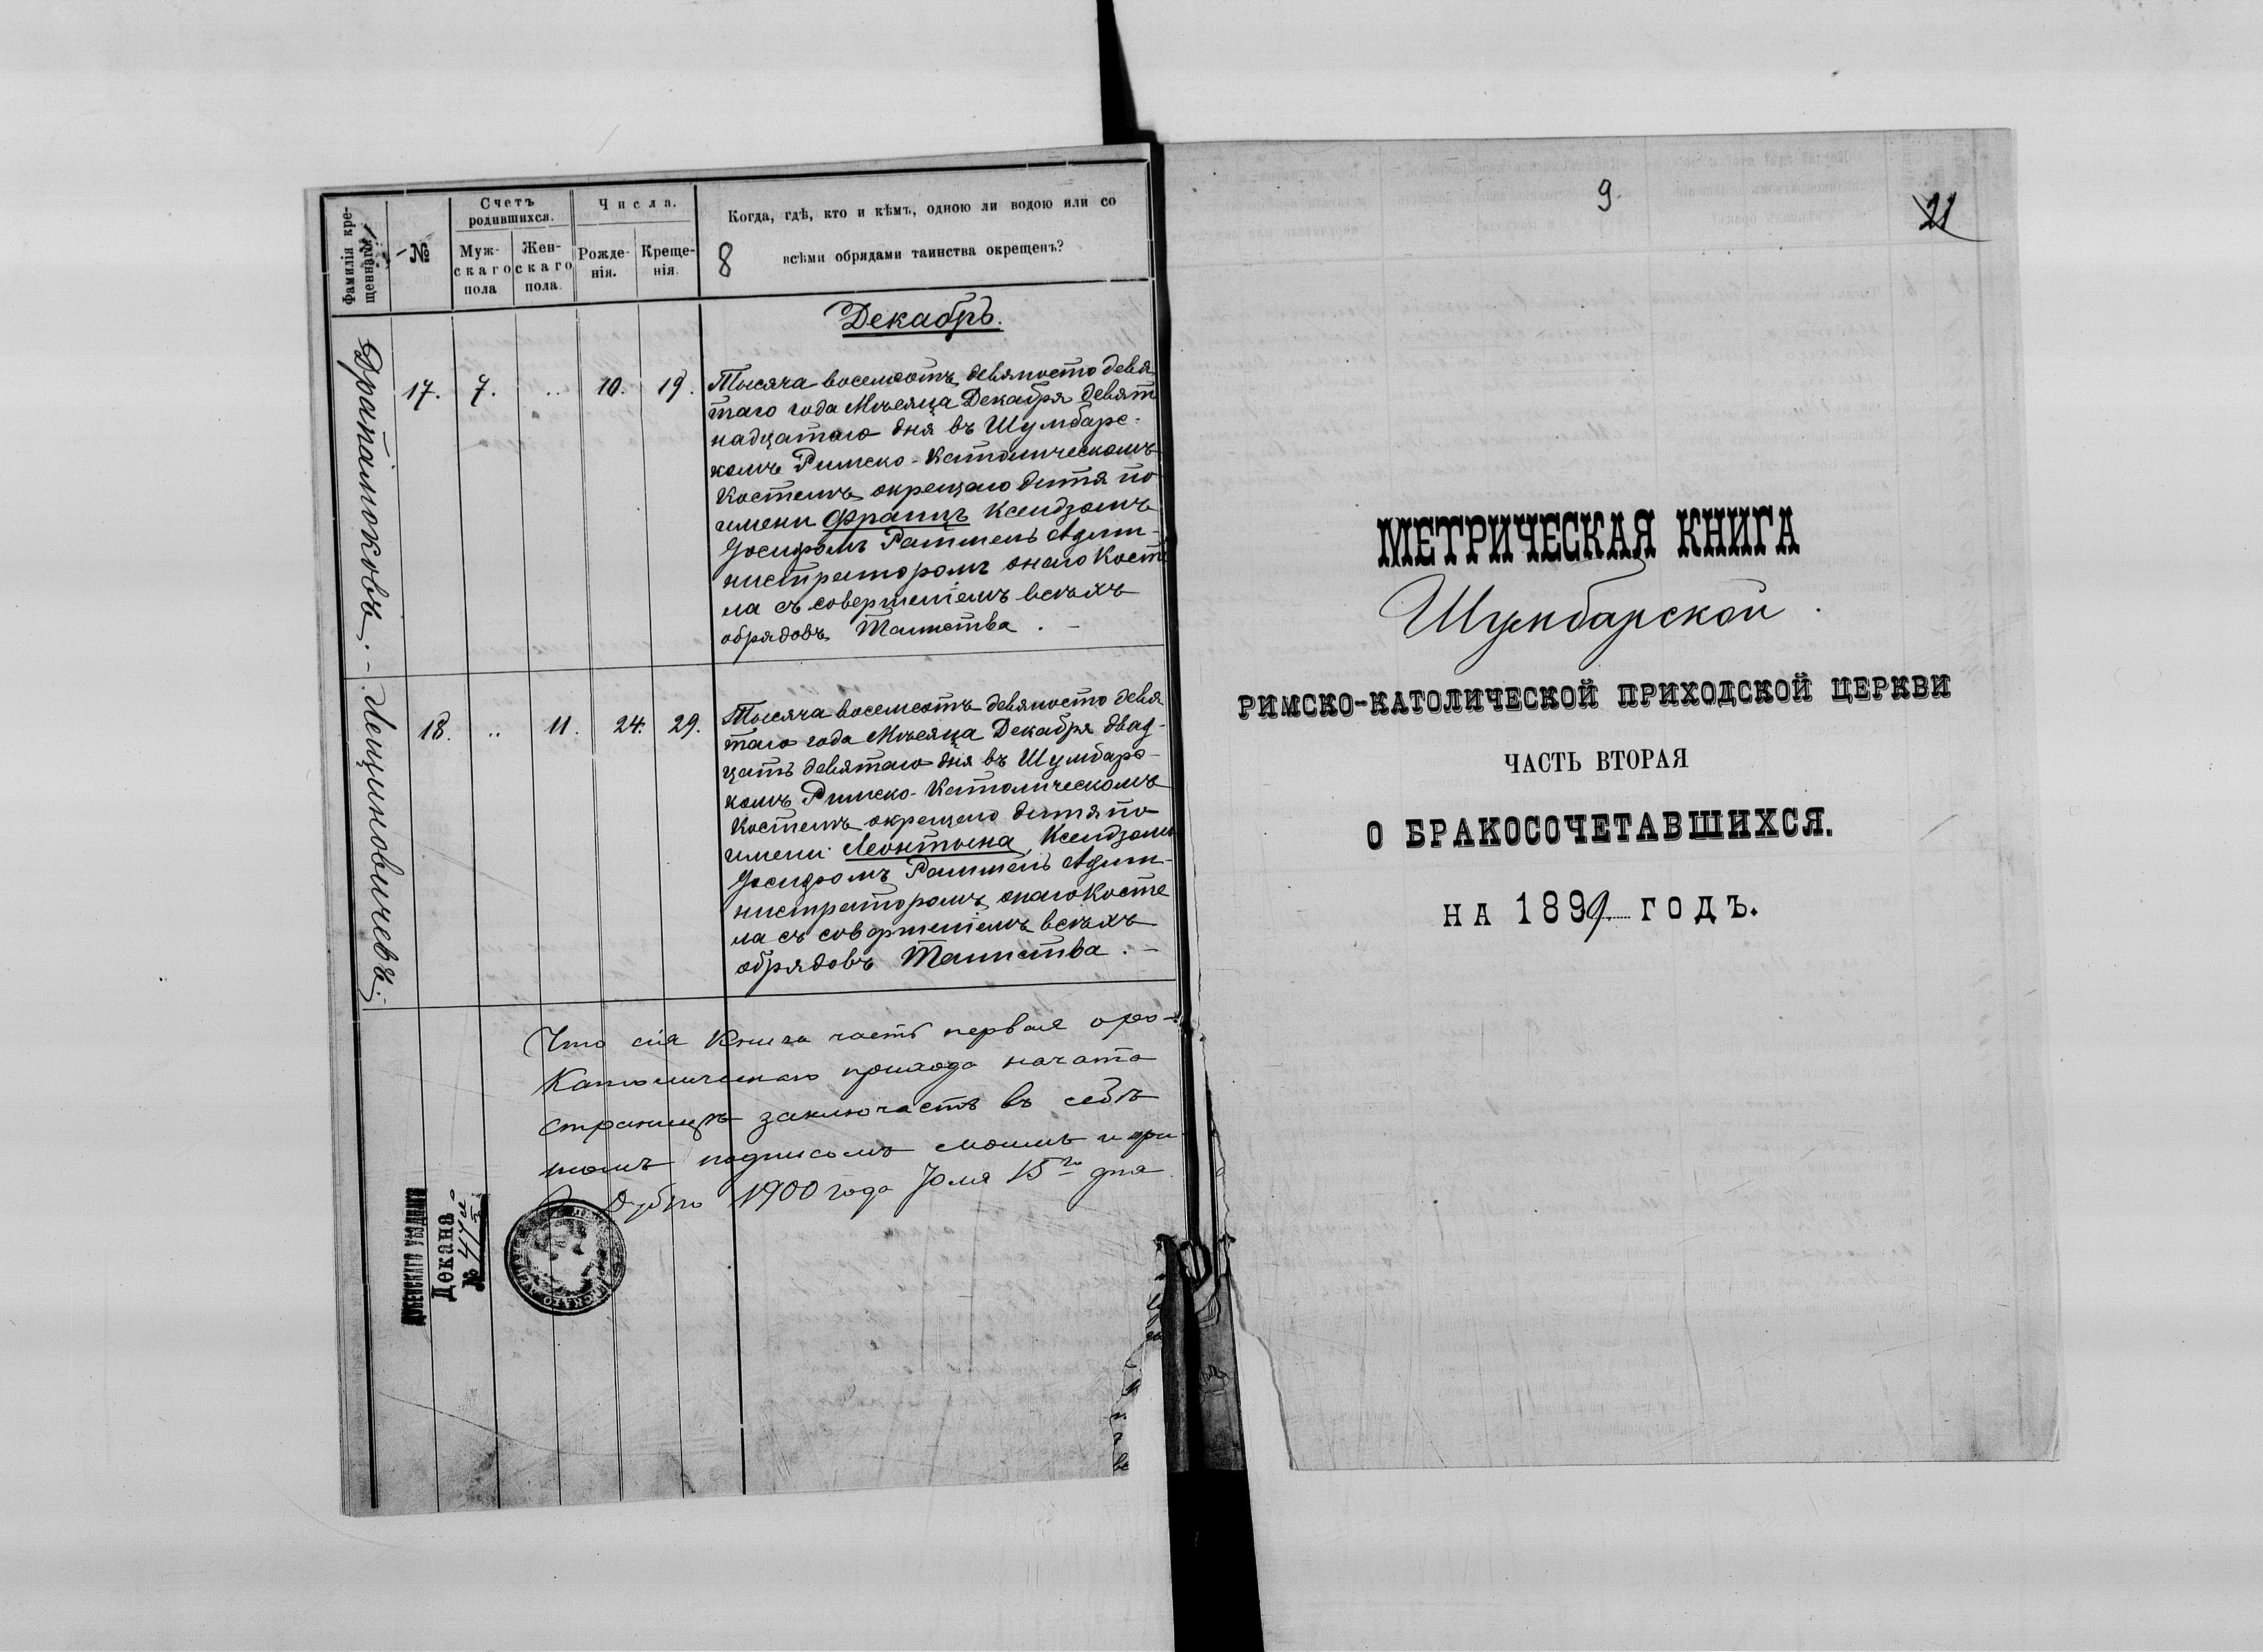 Фамилія кре-
щеннаго
№
Счетъ
родившихся.
Муж-
скаго
пола
Жен-
скаго
пола.
Числа.
Рожде-
нія.
Креще-
нія.
Когда, гдѣ, кто и кѣмъ, одною ли водою или со
всѣми обрядами таинства окрещенъ?
8
Декабрь.
17. 7. .. 10. 19.
Тысяча восемсотъ девяносто девя
таго года Мѣсяца Декабря девят
надцатаго дня въ Шумбарс-
комъ Римско-Католическомъ
Костелѣ окрещено дитя по
имени Францъ Ксендзомъ
Іосифомъ Адми-
нистраторомъ онаго Косте
ла съ совершеніемъ всѣхъ
обрядовъ Таинства. -
Лещиновичевъ.
18. .. 11. 24. 29.
Тысяча восемсотъ девяносто девя
таго года Мѣсяца Декабря двад-
цать девятаго дня въ Шумбарс-
комъ Римско-Католическомъ
Костелѣ окрещено дитя по
имени Леонтына, Ксендзомъ
Іосифомъ Адми-
нистраторомъ онаго Косте
ла съ совершеніемъ всѣхъ
обрядовъ Таинства. -
Что сія Книга часть первая о ро-
Католическаго прихода начата
страницъ заключаетъ въ себѣ
подписомъ моимъ и при
Дубно 1900 года 15го дня
ДУБЕНСКАГО УѢЗДНАГО
Декана
№
9.
21
МЕТРИЧЕСКАЯ КНИГА
Шумбарской
РИМСКО-КАТОЛИЧЕСКОЙ ПРИХОДСКОЙ ЦЕРКВИ
ЧАСТЬ ВТОРАЯ
О БРАКОСОЧЕТАВШИХСЯ.
НА 1899 ГОДЪ.